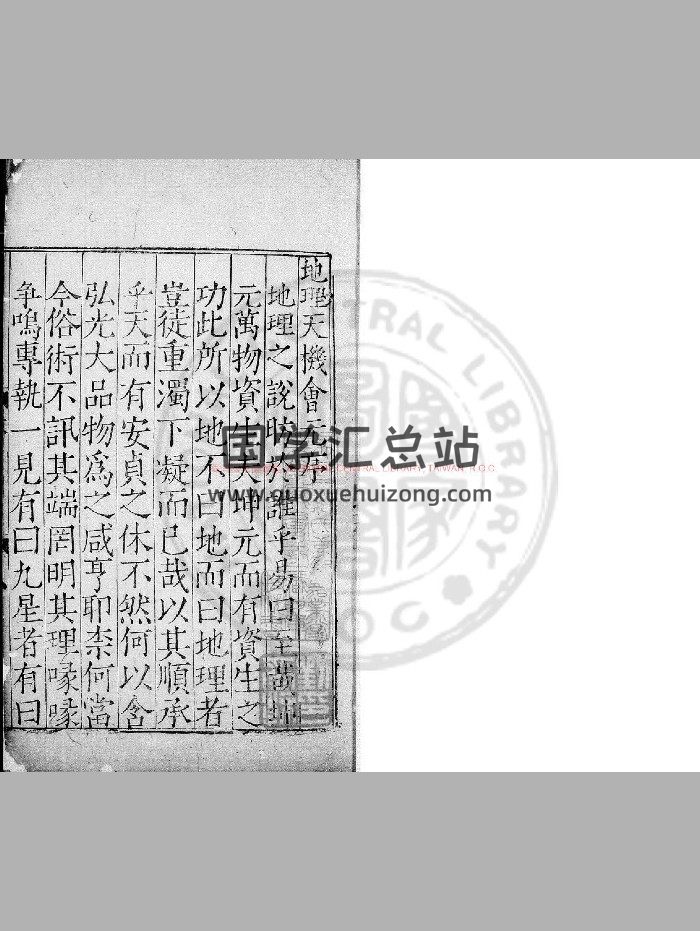 地理天機會元序
地理之說昉於誰乎易曰至哉坤
元萬物資生夫坤元而有資生之
功此所以地不曰地而曰地理者
豈徒重濁下凝而已哉以其順承
乎天而有安貞之休不然何以含
弘光大品物爲之咸亨耶柰何當
今俗術不訊其端罔明其理喙喙
争鳴專執一見有曰九星者有曰
国学汇总站
www.guoxuehuizong.com
CENTRAL LIBRARY